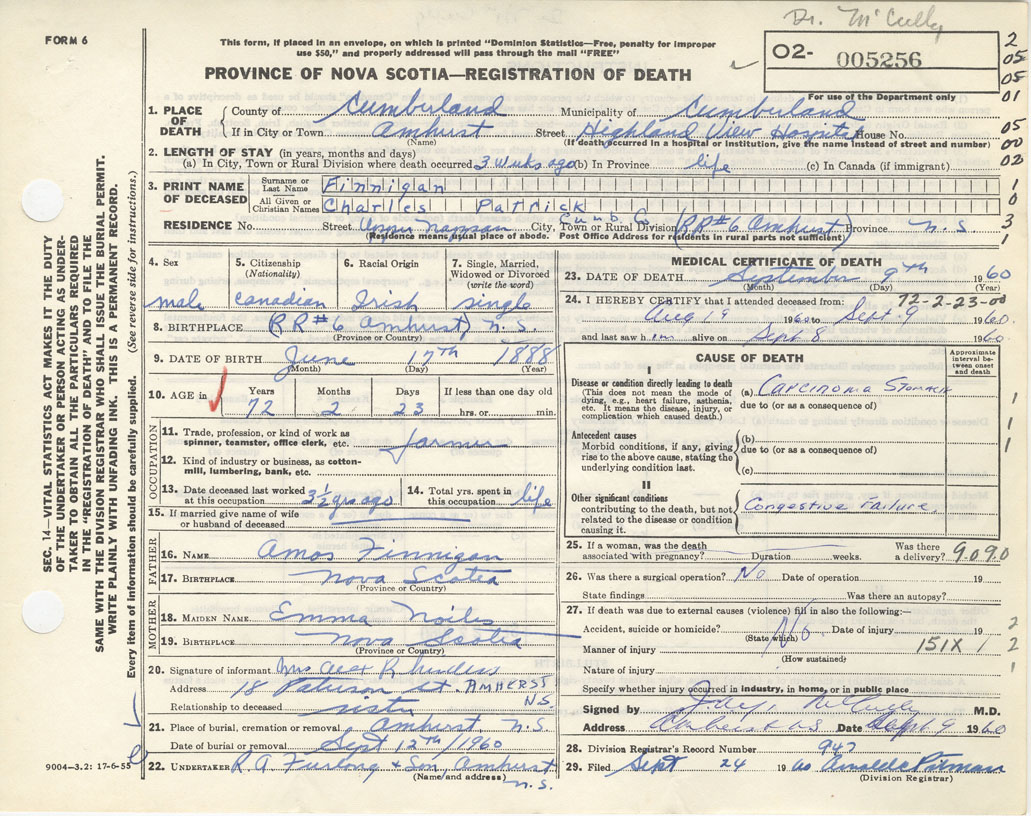 Dr. McCully
FORM 6
This form, if placed in an envelope, on which is printed "Dominion Statistics—Free, penalty for improper
use $50," and properly addressed will pass through the mail "FREE"
PROVINCE OF NOVA SCOTIA—REGISTRATION OF DEATH
O2- 005256
For use of the Department only
2
05
05
01
05
00
02
1
0
3
1
SEC. 14—VITAL STATISTICS ACT MAKES IT THE DUTY
OF THE UNDERTAKER OR PERSON ACTING AS UNDER-
TAKER TO OBTAIN ALL THE PARTICULARS REQUIRED
IN THE "REGISTRATION OF DEATH" AND TO FILE THE
SAME WITH THE DIVISION REGISTRAR WHO SHALL ISSUE THE BURIAL PERMIT.
WRITE PLAINLY WITH UNFADING INK. THIS IS A PERMANENT RECORD.
Every item of information should be carefully supplied. (See reverse side for instructions.)
1. PLACE OF DEATH
County of Cumberland Municipality of Cumberland
If in City or Town Amhurst Street Highland View Hospital House No.
(Name) (If death occurred in a hospital or institution, give the name instead of street and number)
2. LENGTH OF STAY (in years, months and days)
(a) In City, Town or Rural Division where death occurred 3 wuks ago (b) In Province life (c) In Canada (if immigrant)
3. PRINT NAME OF DECEASED
Surname or Last Name Finnigan
All Given or Christian Names Charles Patrick
RESIDENCE No. Street Upper Nappan City, Town or Rural Division Cumb. Co (RR#6 Amhurst) Province N.S
(Residence means usual place of abode. Post Office Address for residents in rural parts not sufficient)
4. Sex male
5. Citizenship (Nationality) Canadian
6. Racial Origin Irish
7. Single, Married, Widowed or Divorced (write the word) single
8. BIRTHPLACE (RR#6 Amhurst) N.S.
(Province or Country)
9. DATE OF BIRTH June 17th 1888
(Month) (Day) (Year)
10. AGE in Years Months Days If less than one day
72 2 23 hrs. or min.
OCCUPATION
11. Trade, profession, or kind of work as
spinner, teamster, office clerk, etc. farmer
12. Kind of industry or business, as cotton-
mill, lumbering, bank, etc.
13. Date deceased last worked at this occupation 3½ yrs ago
14. Total yrs. spent in this occupation life
15. If married give name of wife
or husband of deceased
FATHER
16. NAME Amos Finnigan
17. BIRTHPLACE Nova Scotia
(Province or Country)
MOTHER
18. MAIDEN NAME Emma Noiles
19. BIRTHPLACE Nova Scotia
(Province or Country)
20. Signature of informant Mrs Alex
Address 18 St. AMHERST
Relationship to deceased sister N.S.
21. Place of burial, cremation or removal Amhurst N.S.
Date of burial or removal Sept 12th/1960
22. UNDERTAKER R. A. Furlong & Son, Amhurst
(Name and address) N.S.
9004—3.2: 17-6-55
MEDICAL CERTIFICATE OF DEATH
23. DATE OF DEATH September 9th 1960
(Month) (Day) (Year)
24. I HEREBY CERTIFY that I attended deceased from: 72-2-23-00
Aug 19 1960 to Sept. 9 1960
and last saw him alive on Sept 8 1960
CAUSE OF DEATH
Approximate interval between onset and death
I
Disease or condition directly leading to death
(This does not mean the mode of
dying, e.g., heart failure, asthenia,
etc. It means the disease, injury, or
complication which caused death.)
(a) Carcinoma Stomach
due to (or as a consequence of)
Antecedent causes
Morbid conditions, if any, giving
rise to the above cause, stating the
underlying condition last.
(b)
due to (or as a consequence of)
(c)
II
Other significant conditions
contributing to the death, but not
related to the disease or condition
causing it.
Congestive Failure
1
1
1
25. If a woman, was the death
associated with pregnancy? Duration weeks. Was there a delivery? 9090
26. Was there a surgical operation? No Date of operation 19
State findings Was there an autopsy?
27. If death was due to external causes (violence) fill in also the following:—
Accident, suicide or homicide? No Date of injury 19 2
(State which)
Manner of injury 151X 1 2
(How sustained)
Nature of injury 1
Specify whether injury occurred in industry, in home, or in public place
Signed by M.D.
Address Date Sept 9 1960
28. Division Registrar's Record Number 947
29. Filed Sept 24 1960
(Division Registrar)